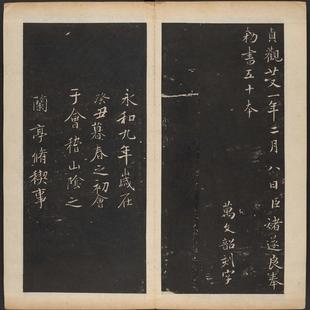 貞觀廿一年二月八日臣褚遂良奉
勑書五十本
萬文韶刻字
永和九年歲在
癸丑暮春之初會
于會稽山陰之
蘭亭脩稧事